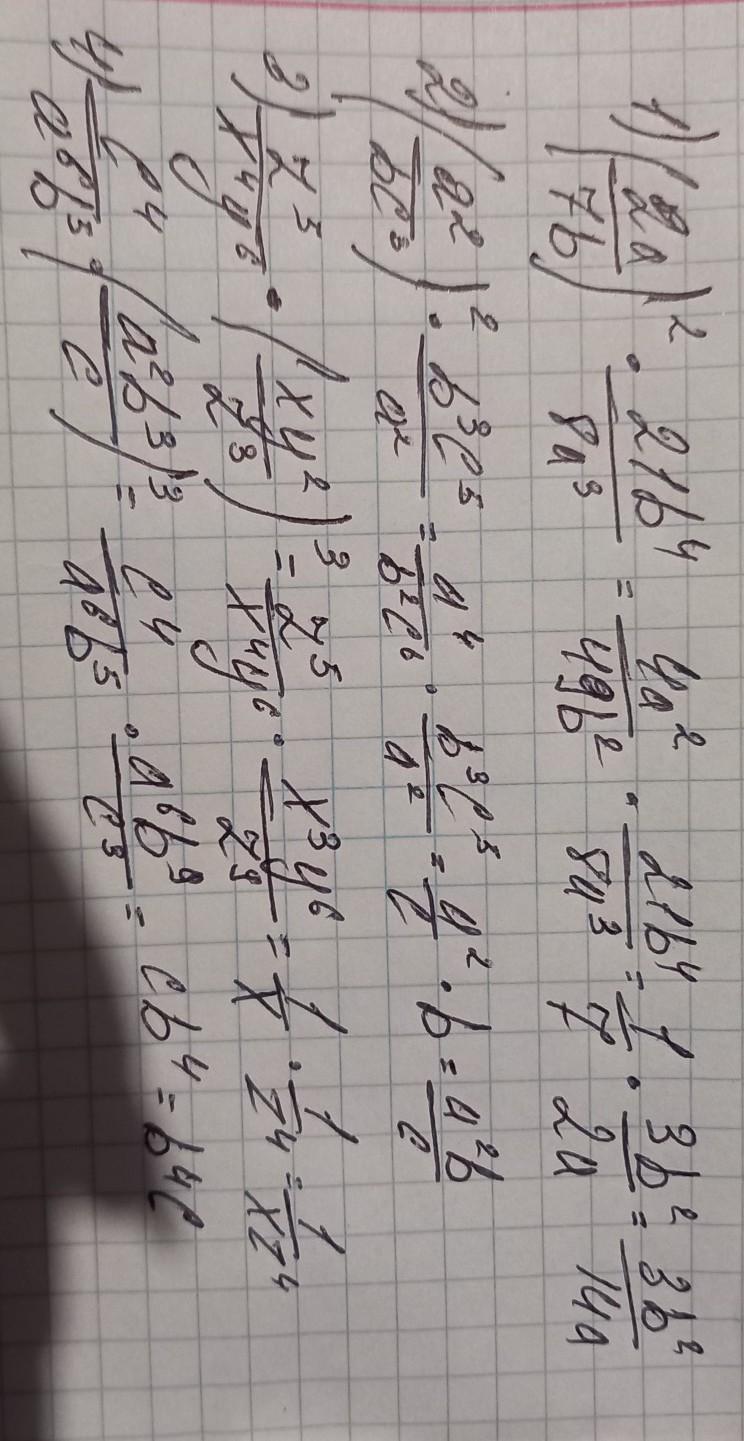 1) (2a/7b)² · 21b⁴/8a³ = 4a²/49b² · 21b⁴/8a³ = 1/7 · 3b²/2a = 3b²/14a
2) (a²/bc³)² · b³c⁵/a² = a⁴/b²c⁶ · b³c⁵/a² = a²/c · b = a²b/c
3) z⁵/x⁴y⁶ · (xy²/z³)³ = z⁵/x⁴y⁶ · x³y⁶/z⁹ = 1/x · 1/z⁴ = 1/xz⁴
4) c⁴/a⁶b⁵ · (a²b³/c)³ = c⁴/a⁶b⁵ · a⁶b⁹/c³ = cb⁴ = b⁴c